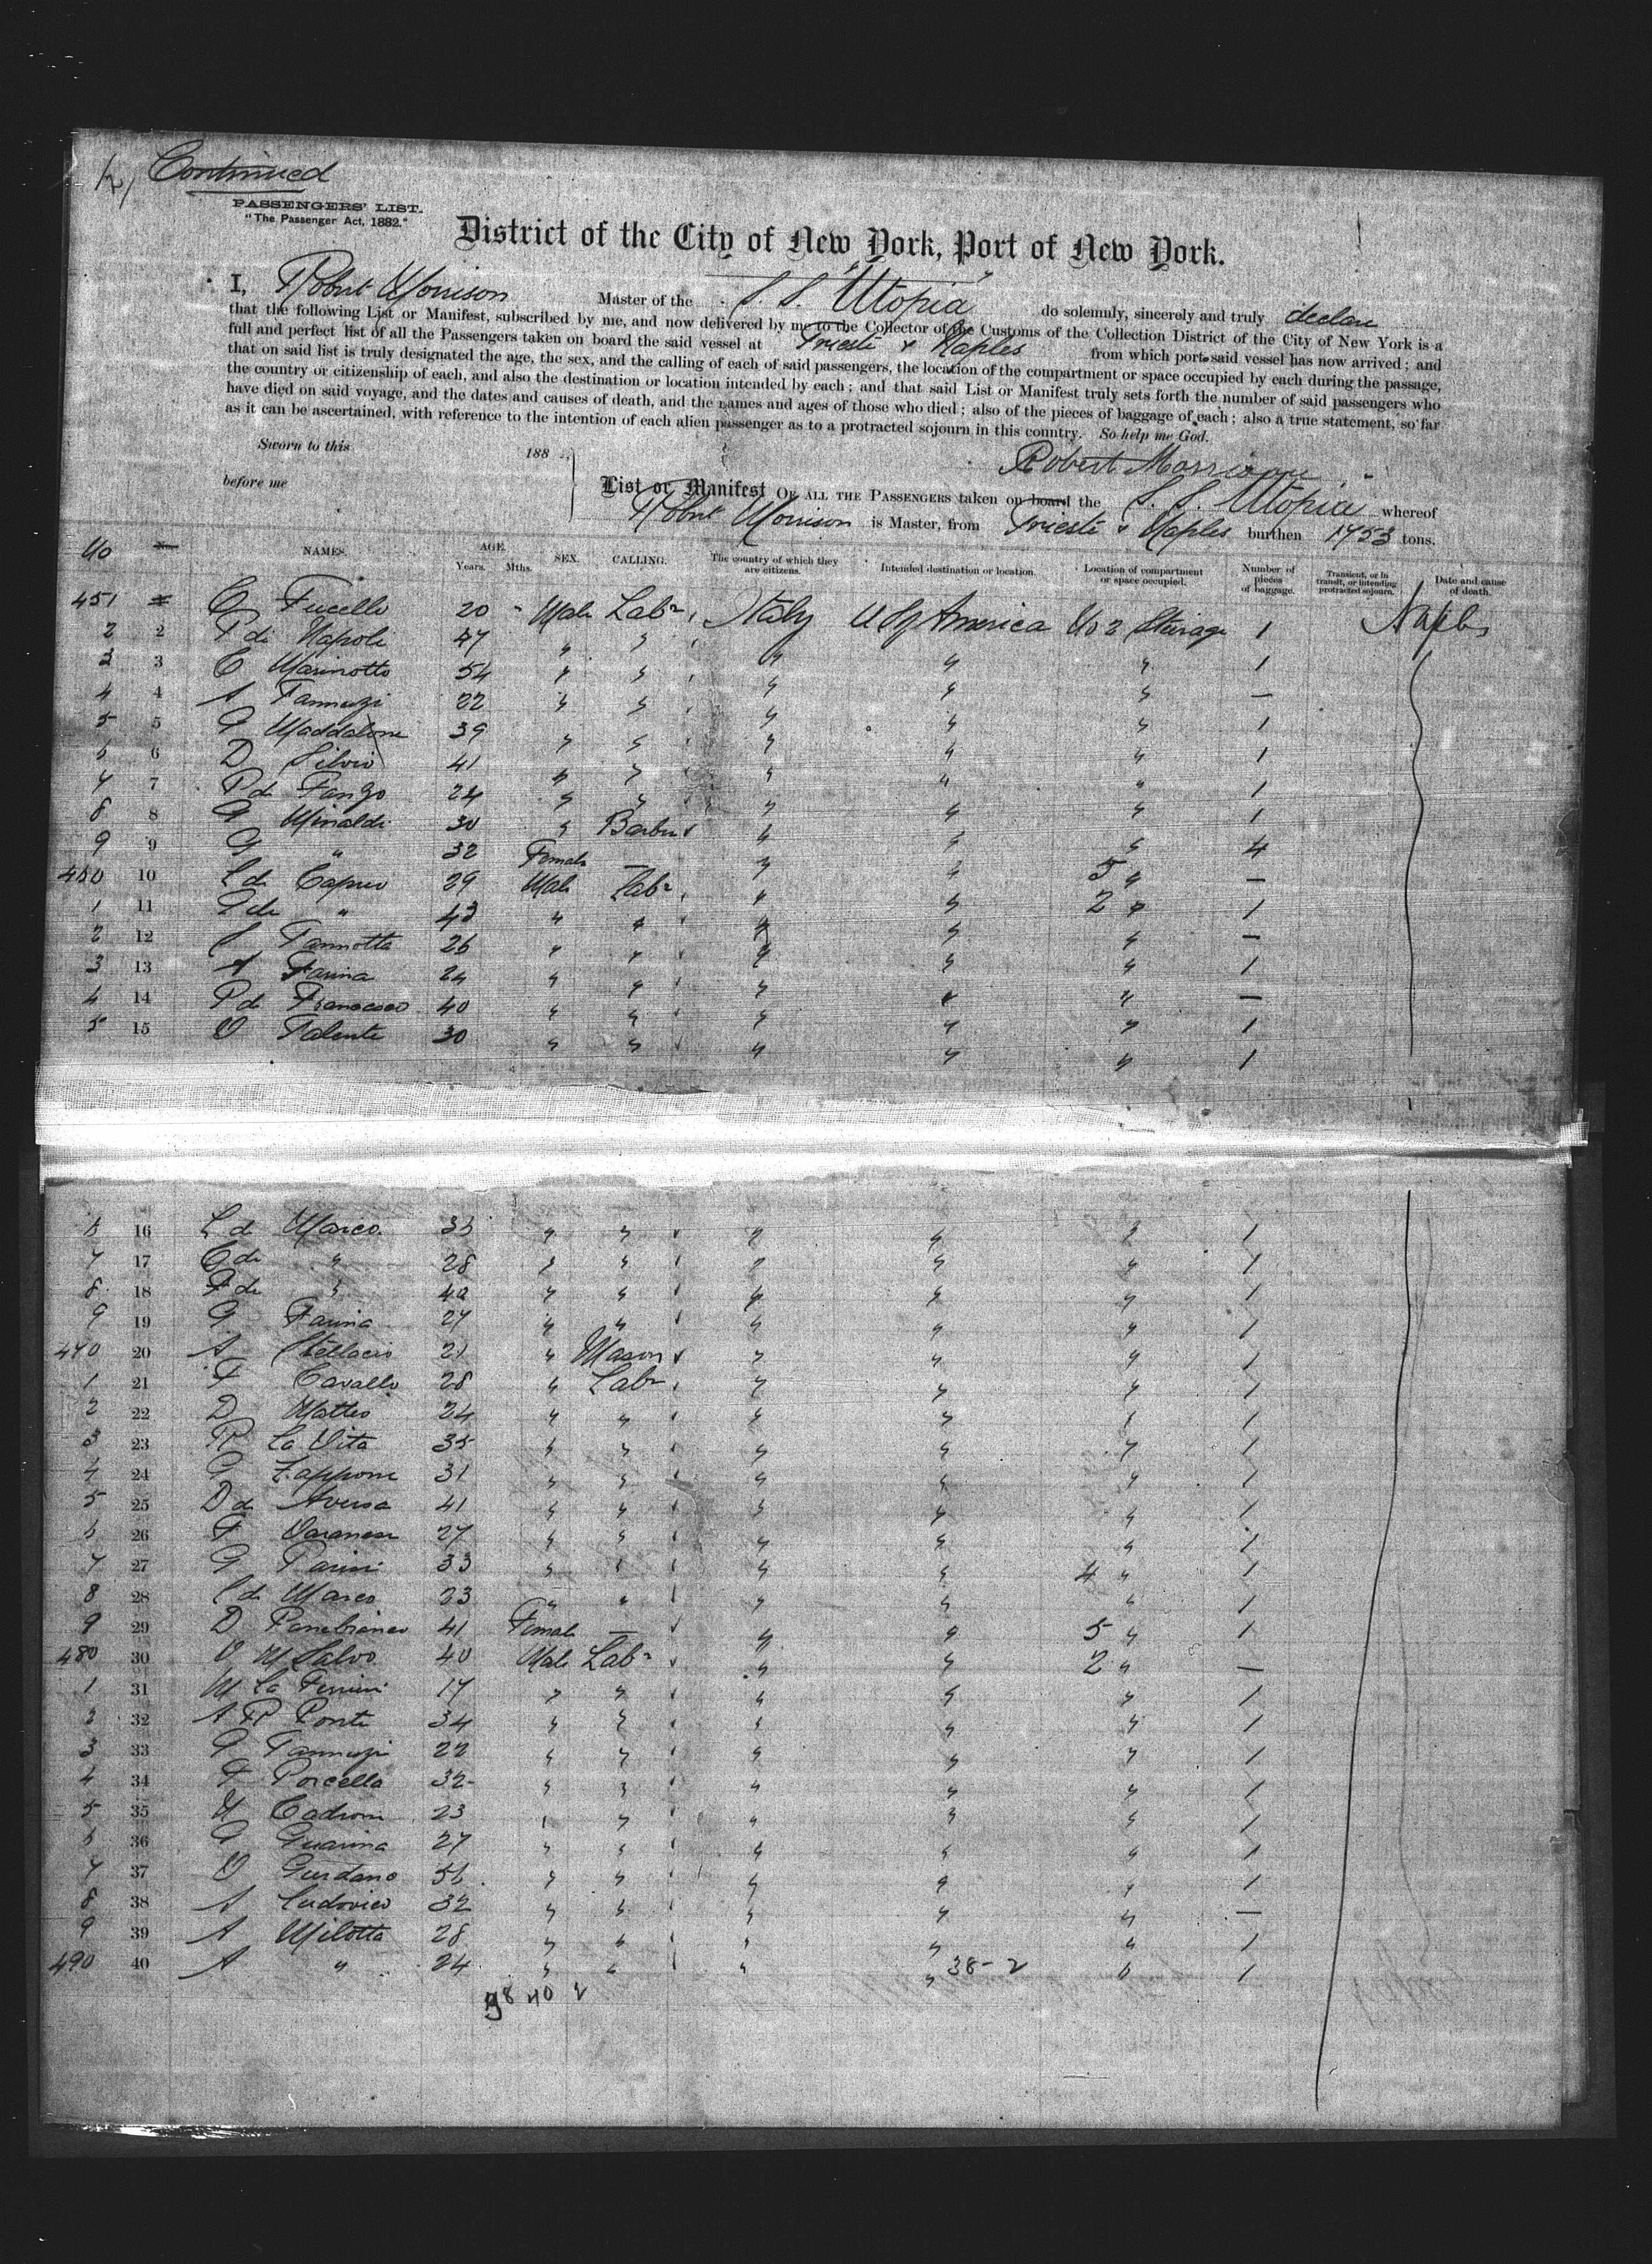 Continued
PASSENGERS' LIST.
"The Passenger Act, 1882."
District of the City of New York, Port of New York.
I, Robert Morrison Master of the S. S. "Utopia" do solemnly, sincerely and truly declare
that the following List or Manifest, subscribed by me, and now delivered by me to the Collector of the Customs of the Collection District of the City of New York is a
full and perfect list of all the Passengers taken on board the said vessel at Trieste & Naples from which port said vessel has now arrived; and
that on said list is truly designated the age, the sex, and the calling of each of said passengers, the location of the compartment or space occupied by each during the passage,
the country or citizenship of each, and also the destination or location intended by each; and that said List or Manifest truly sets forth the number of said passengers who
have died on said voyage, and the dates and causes of death, and the names and ages of those who died; also of the pieces of baggage of each; also a true statement, so far
as it can be ascertained, with reference to the intention of each alien passenger as to a protracted sojourn in this country. So help me God.
Sworn to this 188
Robert Morrison
before me
List or Manifest OF ALL THE PASSENGERS taken on board the S. S. Utopia whereof
Robert Morrison is Master, from Trieste & Naples burthen 1753 tons.
No NAMES. AGE. Years. Mths. SEX. CALLING. The country of which they are citizens. Intended destination or location. Location of compartment or space occupied. Number of pieces of baggage. Transient, or in transit, or intending protracted sojourn. Date and cause of death.
451 C Fucello 20 Male Labr Italy U S of America No 2 Steirage 1 Naples
2 2 P di Napoli 47 " " " " " 1
3 3 C Marinotto 54 " " " " " —
4 4 A Tannuzi 22 " " " " " 1
5 5 G Maddalone 39 " " " " " 1
6 6 D Silvio 41 " " " " " 1
7 7 P di Fanzo 24 " " " " " 1
8 8 G Minaldi 30 " Barber " " " 4
9 9 G " 32 Female — " " 5 " —
460 10 L di Capuo 29 Male Labr " " 2 " 1
1 11 G di " 43 " " " " " —
2 12 S Tannotta 26 " " " " " 1
3 13 A Farina 24 " " " " " —
4 14 P di Francesco 40 " " " " " 1
5 15 V Talente 30 " " " " " 1
6 16 L di Marco 36 " " " " " 1
7 17 C di " 28 " " " " " 1
8 18 F di " 40 " " " " " 1
9 19 G Farina 27 " " " " " 1
470 20 A Stellacio 21 " Mason " " " 1
1 21 F Cavallo 28 " Labr " " " 1
2 22 D Matteo 24 " " " " " 1
3 23 R La Vita 35 " " " " " 1
4 24 G Zappone 31 " " " " " 1
5 25 D di Aversa 41 " " " " " 1
6 26 F Varanese 27 " " " " " 1
7 27 G Parisi 33 " " " " 4 " 1
8 28 C di Marco 23 " " " " " 1
9 29 D Panebianco 41 Female — " " 5 " 1
480 30 V M Salvo 40 Male Labr " " 2 " —
1 31 M La 17 " " " " " 1
2 32 A R Ponte 34 " " " " " 1
3 33 G Tannuzi 22 " " " " " 1
4 34 F Porcella 32 " " " " " 1
5 35 Cadroni 23 " " " " " 1
6 36 G Guarina 27 " " " " " 1
7 37 V Gurdano 56 " " " " " 1
8 38 A Ludovico 32 " " " " " —
9 39 A Milotta 28 " " " " " 1
490 40 A " 24 " " " " 38-2 " 1
38 40 2